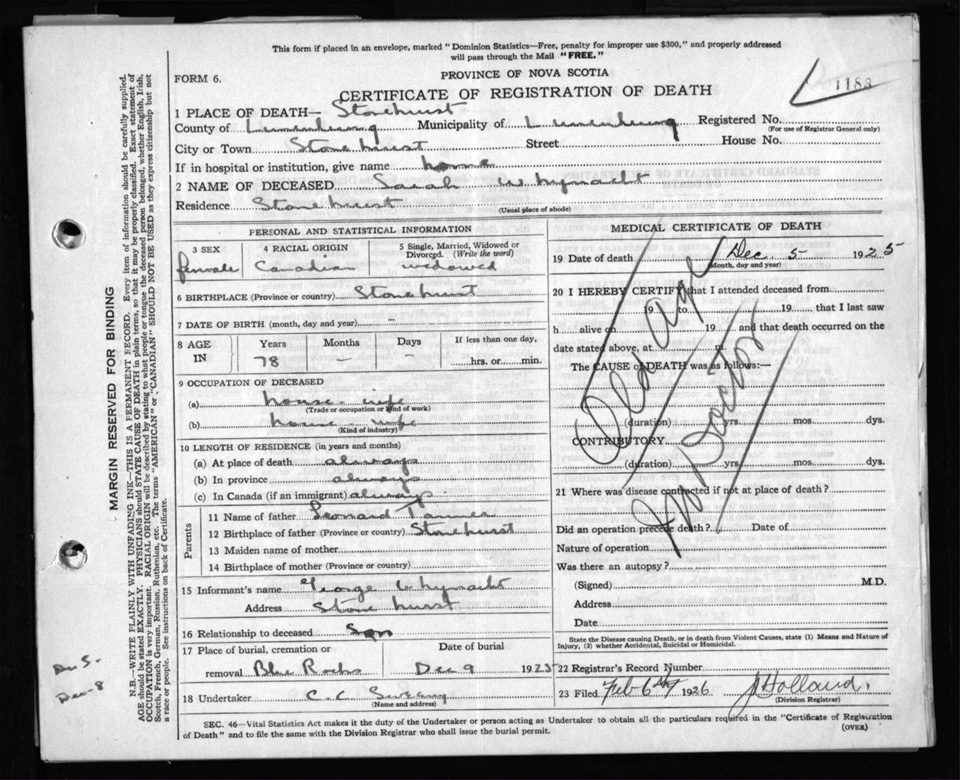 This form if placed in an envelope, marked "Dominion Statistics—Free, penalty for improper use $300," and properly addressed
will pass through the Mail "FREE."
FORM 6.
PROVINCE OF NOVA SCOTIA
CERTIFICATE OF REGISTRATION OF DEATH
1188
1 PLACE OF DEATH— Stonehurst
County of Lunenburg Municipality of Lunenburg Registered No.
(For use of Registrar General only)
City or Town Stonehurst Street House No.
If in hospital or institution, give name home
2 NAME OF DECEASED Sarah Whynacht
Residence Stonehurst
(Usual place of abode)
PERSONAL AND STATISTICAL INFORMATION
3 SEX 4 RACIAL ORIGIN 5 Single, Married, Widowed or
Divorced. (Write the word)
female Canadian widowed
6 BIRTHPLACE (Province or country) Stonehurst
7 DATE OF BIRTH (month, day and year) –
8 AGE IN Years Months Days If less than one day,
78 – – hrs. or min.
9 OCCUPATION OF DECEASED
(a) house-wife
(Trade or occupation or kind of work)
(b) house-wife
(Kind of industry)
10 LENGTH OF RESIDENCE (in years and months)
(a) At place of death always
(b) In province always
(c) In Canada (if an immigrant) always
Parents
11 Name of father Leonard Tanner
12 Birthplace of father (Province or country) Stonehurst
13 Maiden name of mother
14 Birthplace of mother (Province or country)
15 Informant's name George Whynacht
Address Stonehurst
16 Relationship to deceased Son
17 Place of burial, cremation or Date of burial
removal Blue Rocks Dec 9 1925
18 Undertaker C. C.
(Name and address)
MEDICAL CERTIFICATE OF DEATH
19 Date of death Dec. 5 1925
(Month, day and year)
20 I HEREBY CERTIFY that I attended deceased from
19 to 19 that I last saw
h alive on 19 and that death occurred on
date stated above, at m.
The CAUSE of DEATH was as follows:
Old Age
No Doctor
(duration) yrs. mos. dys.
CONTRIBUTORY
(duration) yrs. mos. dys.
21 Where was disease contracted if not at place of death?
Did an operation precede death? Date of
Nature of operation
Was there an autopsy?
(Signed) M.D.
Address
Date
State the Disease causing Death, or in death from Violent Causes, state (1) Means and Nature of
Injury, (2) whether Accidental, Suicidal or Homicidal.
22 Registrar's Record Number
23 Filed Feb 6th 1926 J Holland.
(Division Registrar)
SEC. 46—Vital Statistics Act makes it the duty of the Undertaker or person acting as Undertaker to obtain all the particulars required in the "Certificate of Registration
of Death" and to file the same with the Division Registrar who shall issue the burial permit.
(OVER)
MARGIN RESERVED FOR BINDING
N.B.—WRITE PLAINLY WITH UNFADING INK—THIS IS A PERMANENT RECORD. Every item of information should be carefully supplied.
AGE should be stated EXACTLY. PHYSICIANS should STATE CAUSE OF DEATH in plain terms, so that it may be properly classified. Exact statement of
OCCUPATION is very important. RACIAL ORIGIN will be described by stating to what people or tongue the deceased person belonged, whether English, Irish,
Scotch, French, German, Russian, Ruthenian, etc. The terms "AMERICAN" or "CANADIAN" SHOULD NOT BE USED as they express citizenship but not
a race or people. See instructions on back of Certificate.
Dec-8